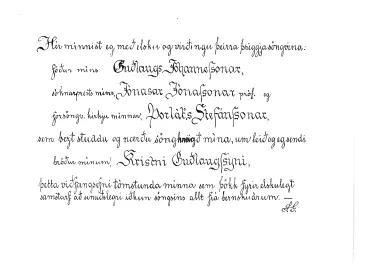 Hér minnist eg með elsku og virðingu þeirra þriggja söngvina:
föður míns Guðlaugs Jóhannessonar,
sóknarprests míns, Jónasar Jónassonar próf. og
forsöngv. kirkju minnar, Þorláks Stefánssonar,
sem bezt studdu og nærðu sönghneigð mína, um leið og eg sendi
bróður mínum, Kristni Guðlaugssyni,
þetta viðfangsefni tómstunda minna sem þökk fyrir elskulegt
samstarf að unaðslegri iðkun söngsins allt frá bernskuárum.